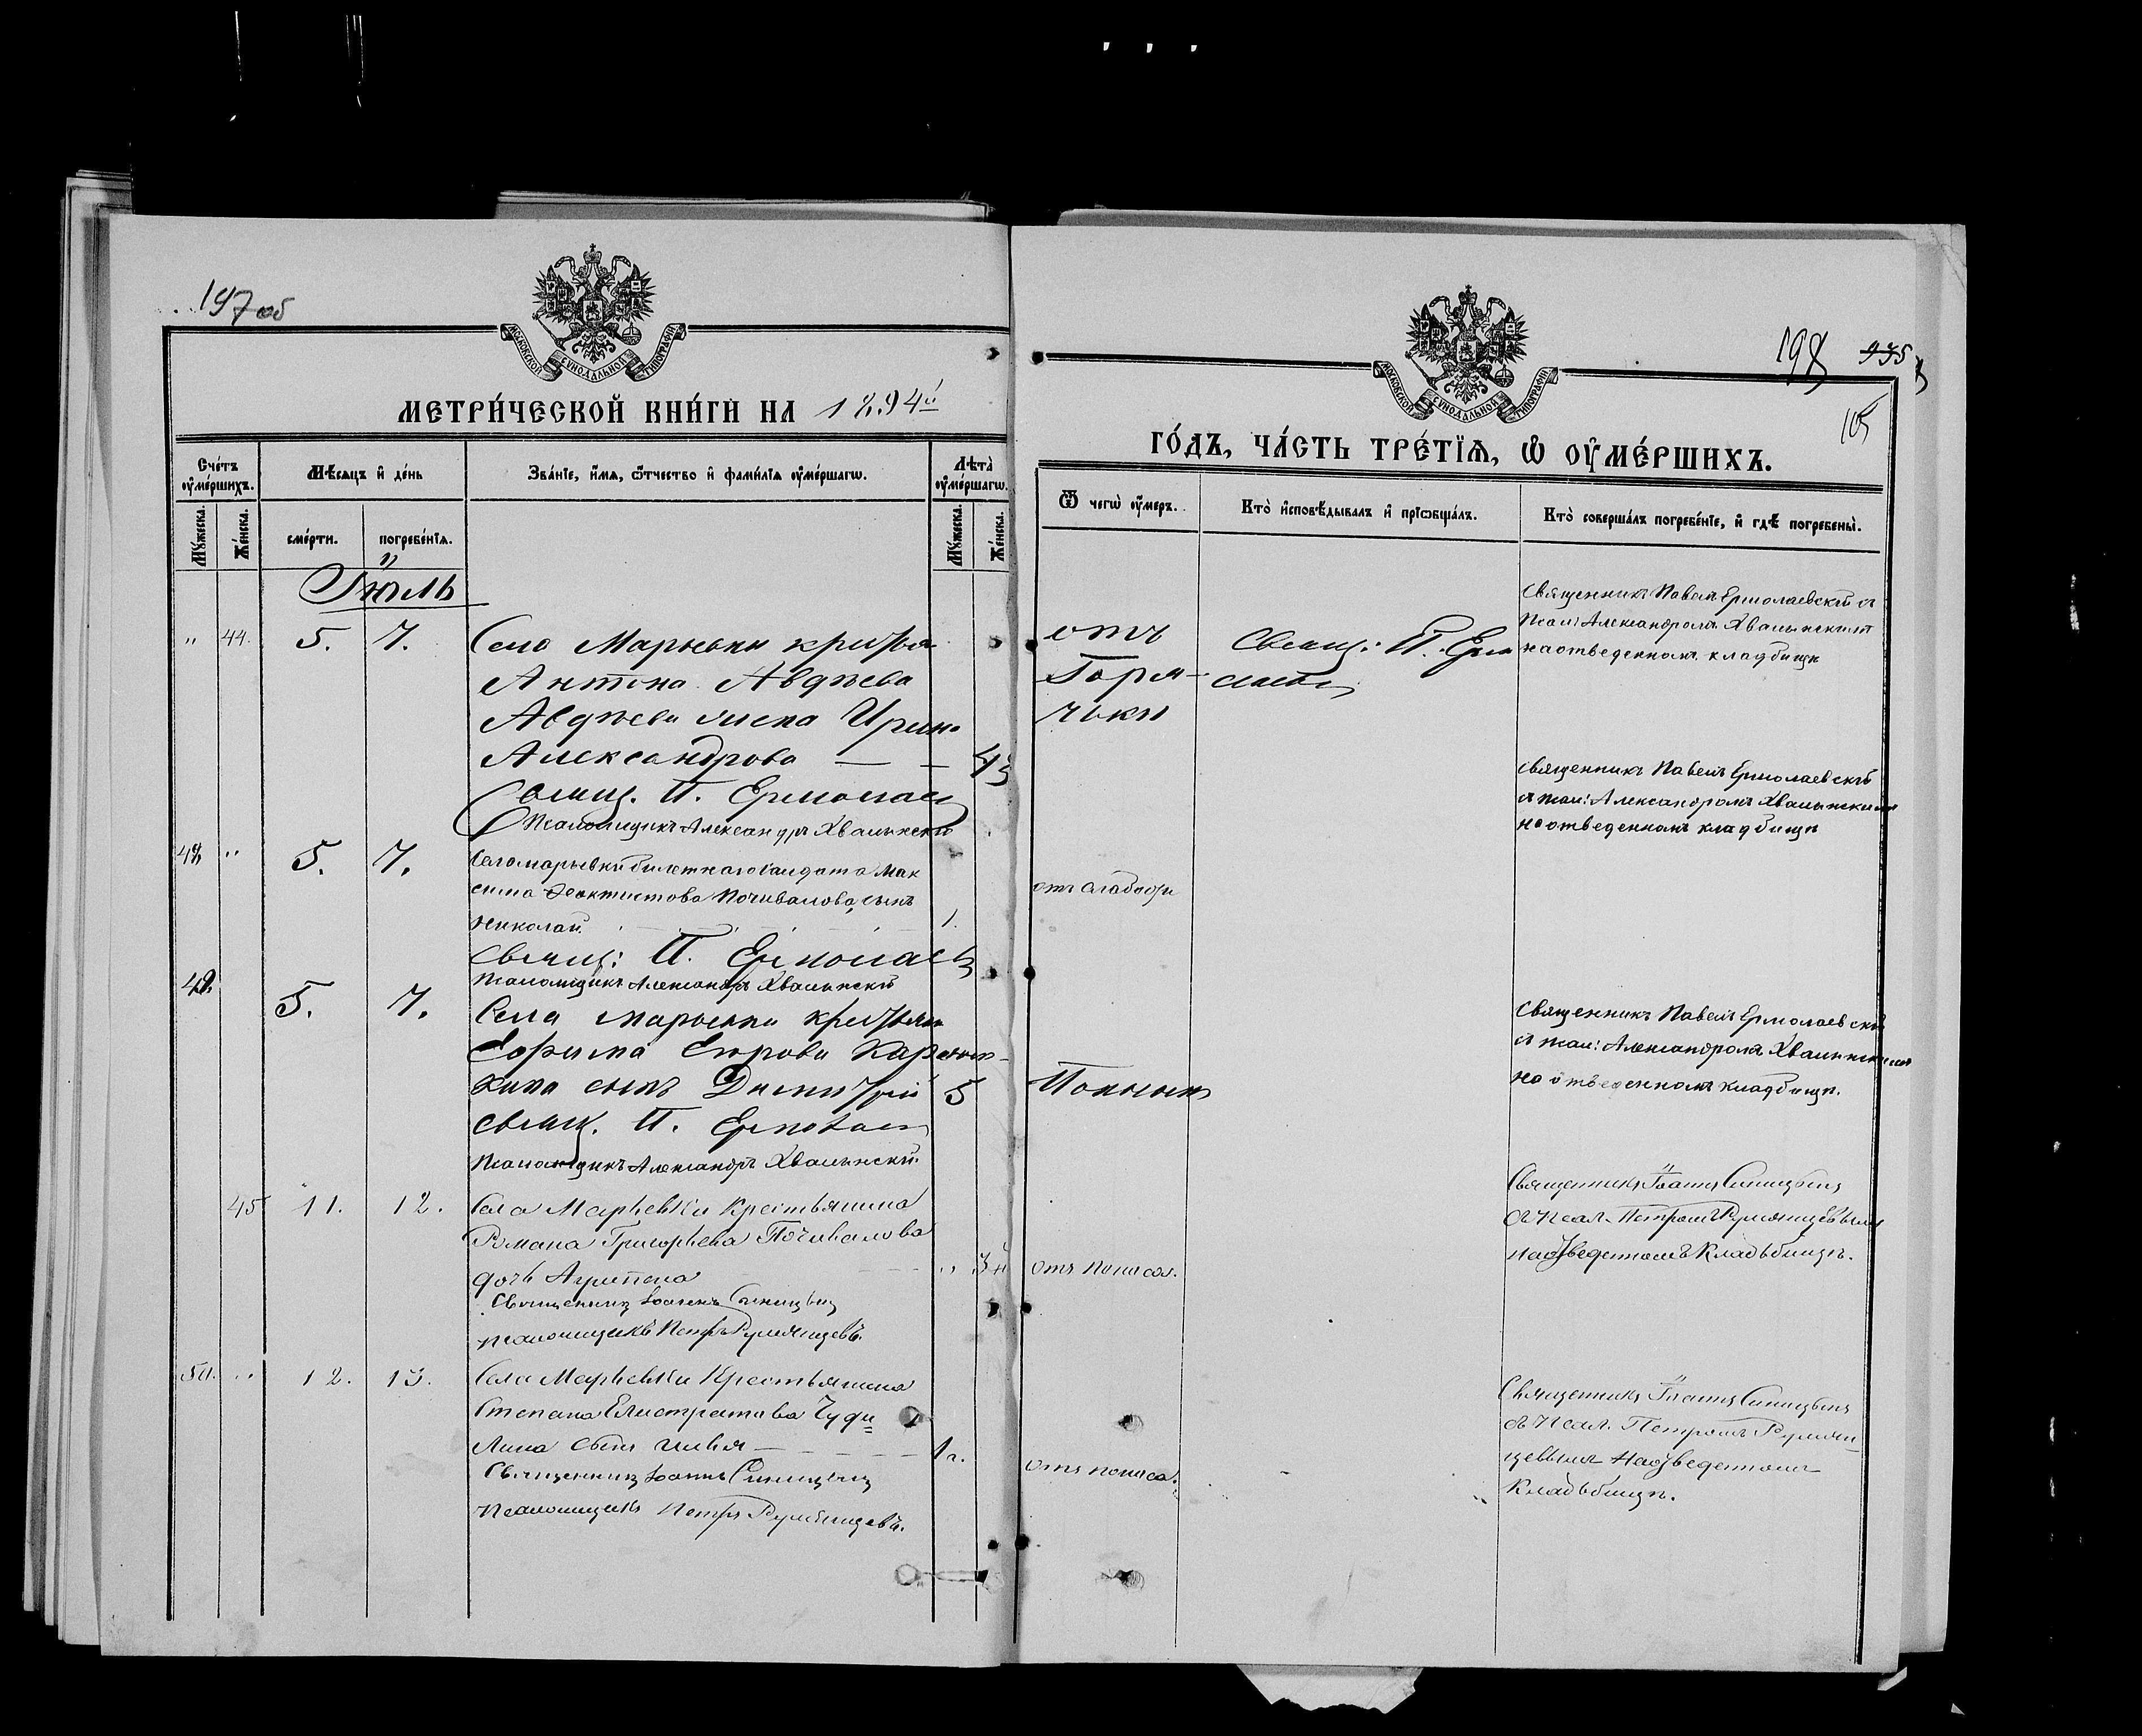 197 об
МОСКОВСКОЙ СѴНОДАЛЬНОЙ ТИПОГРАФІИ
МЕТРИ́ЧЕСКОЙ КНИ́ГИ НА 1894й
Сче́тъ ᲂу҆ме́ршихъ.
Мѣ́сяцъ и҆ де́нь
Зва́нїе, и҆́мя, ѻ҆́тчество и҆ фами́лїя ᲂу҆ме́ршагѡ.
Лѣта̀ ᲂу҆ме́ршагѡ.
Мꙋ́жеска.
Же́нска.
сме́рти.
погребе́нїя.
Мꙋ́жеска.
Же́нска.
Іюль
" 44. 5. 7. Села Марьевки
Антона Авдѣева
Авдѣева жена Ирина
Александрова — — 43
Свящ. П. Ермолаев
Псаломщикъ Александръ Хвалынскій
48 " 5. 7. Села Марьевки билетнаго солдата Мак
сима Феоктистова Почивалова, сынъ
Николай 1.
Свящ: П. Ермолаев
Псаломщикъ Александръ Хвалынскій
49. 5. 7. Села Марьевки
Ефима Егорова
кина сынъ Димитрій 5
Свящ. П. Ермолаев
Псаломщикъ Александръ Хвалынскій.
45 11. 12. Села Марьевки Крестьянина
Романа Григорьева Почивалова
дочь Агрипена "
Священникъ Іоаннъ Синицынъ
псаломщикъ Петръ Румянцевъ.
50. " 12. 13. Села Марьевки Крестьянина
Степана Елистратова Чуди
лина сынъ Илья 1 г.
Священникъ Іоаннъ Синицынъ
Псаломщикъ Петръ Румянцевъ.
198
105
МОСКОВСКОЙ СѴНОДАЛЬНОЙ ТИПОГРАФІИ
ГО́ДЪ, ЧА́СТЬ ТРЕ́ТЇѦ, Ѡ҆ ОУ҆МЕ́РШИХЪ.
Ѿ чегѡ̀ ᲂу҆́меръ.
Кто̀ и҆сповѣ́дывалъ и҆ прїѡбща́лъ.
Кто̀ соверша́лъ погребе́нїе, и҆ гдѣ̀ погребены̀.
отъ
Горя-
чьки
Свящ: П. Ерм
Священникъ Павелъ Ермолаевскій съ
Псал: Александромъ Хвалынскимъ
на отведенномъ кладбищѣ
отъ слабости
Священникъ Павелъ Ермолаевскій
съ псал: Александромъ Хвалынскимъ
на отведенномъ кладбищѣ
Поносъ
Священникъ Павелъ Ермолаевскій
съ псал: Александромъ Хвалынскимъ
на отведенномъ кладбищѣ.
отъ поноса.
Священникъ Іоаннъ Синицынъ
съ Псал. Петромъ Румянцевымъ
на отведенномъ Кладьбищѣ.
отъ поноса.
Священникъ Іоаннъ Синицынъ
съ Псал. Петромъ Румян
цевымъ на отведенномъ
Кладьбищѣ.